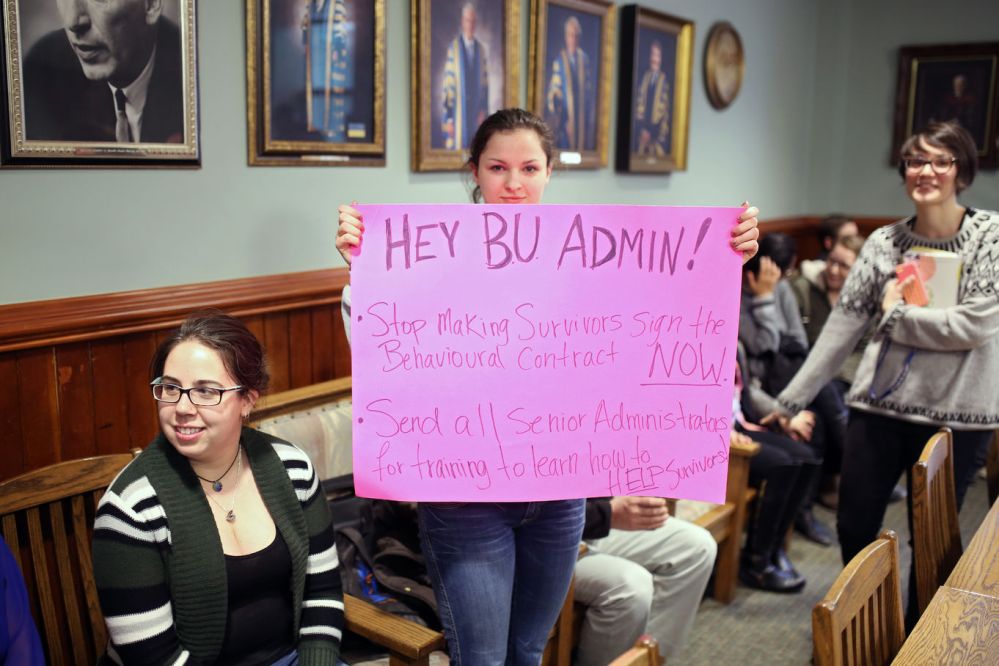 HEY B.U. ADMIN!
• Stop Making Survivors sign the
Behavioural Contract NOW.
• Send all Senior Administrators
for training to learn how to
HELP Survivors!